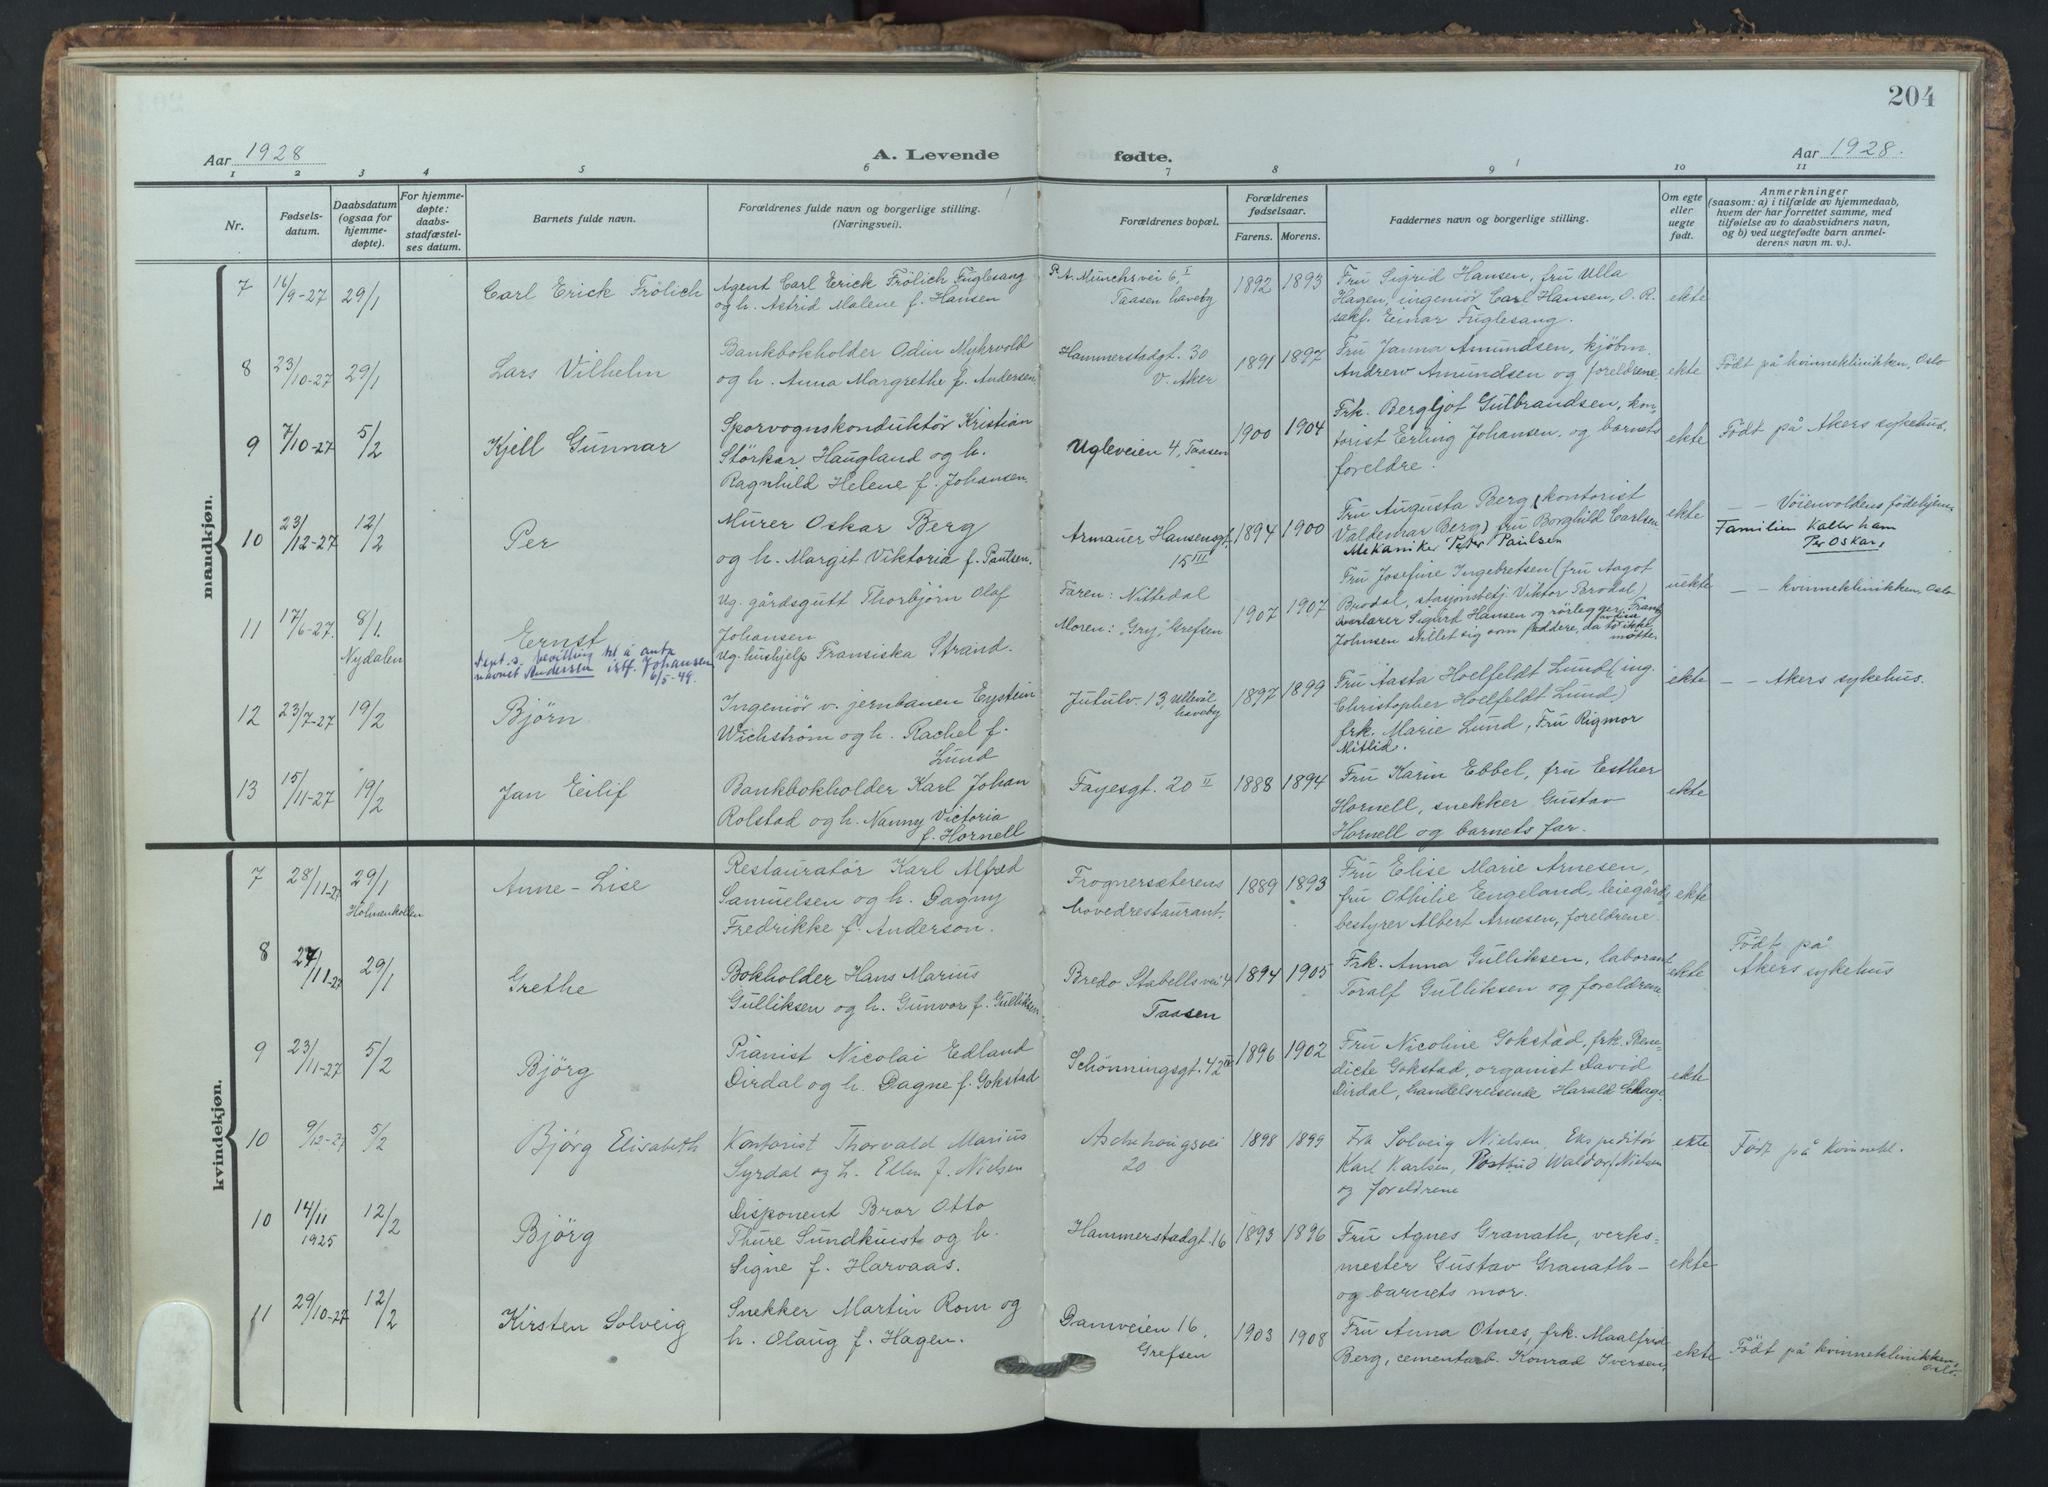 204
Aar 1928
A. Levende
fødte.
Aar 1928.
1 2 3 4 5 6 7 8 9 10 11
Nr.
Fødsels-
datum.
Daabsdatum
(ogsaa for
hjemme-
døpte).
For hjemme-
døpte:
daabs-
stadfæstel-
ses datum.
Barnets fulde navn.
Forældrenes fulde navn og borgerlige stilling.
(Næringsvei).
Forældrenes bopæl.
Forældrenes
fødselsaar.
Farens. Morens.
Faddernes navn og borgerlige stilling.
Om egte
eller
uegte
født.
Anmerkninger
(saasom: a) i tilfælde av hjemmedaab,
hvem der har forrettet samme, med
tilføielse av to daabsvidners navn,
og b) ved uegtefødte barn anmel-
derens navn m. v.).
mandkjøn.
7
16/9-27
29/1
Carl Erick Frölich
Agent Carl Erick Frölich Fuglesang
og h. Astrid Malene f. Hansen
P. A. Munchsvei 6 I
Taasen haveby
1892
1893
Fru Sigrid Hansen, fru Ulla
Hagen, ingeniør Carl Hansen, O. R.
sakf. Einar Fuglesang.
ekte
8
23/10-27
29/1
Lars Vilhelm
Bankbokholder Odin Myhrvold
og h. Anna Margrethe f. Andersen
Hammerstadgt. 30
V. Aker
1891
1897
Fru Janna Amundsen, kjøbm.
Andrew Amundsen og foreldrene
ekte
Født på kvinneklinikken, Oslo
9
7/10-27
5/2
Kjell Gunnar
Sporvognskonduktør Kristian
Störkar Haugland og h.
Ragnhild Helene f. Johansen.
Ugleveien 4, Taasen
1900
1904
Frk. Bergljot Gulbrandsen, kon-
torist Erling Johansen, og barnets
foreldre.
ekte
Født på Akers sykehus.
10
23/12-27
12/2
Per
Murer Oskar Berg
og h. Margit Viktoria f. Paulsen.
Armauer Hansensgt.
15 III
1894
1900
Fru Augusta Berg (kontorist
Valdemar Berg) fru Borghild Carlsen
Mekaniker Peder Paulsen
ekte
— — Vöienvoldens fødehjem.
Familien kaller ham
Per Oskar.
11
17/6-27.
8/1.
Nydalen
Ernst
Dept.s. bevilling til å anta
navnet Anderssen istf. Johansen
6/5-49.
Ug. gårdsgutt Thorbjørn Olaf
Johansen
Ug. hushjelp Fransiska Strand.
Faren: Nittedal
Moren: "Gry", Grefsen
1907
1907
Fru Josefine Ingebretsen (fru Aagot
Brodal, stasjonsbetj. Viktor Brodal)
Overlærer Sigurd Hansen og rørlegger Frantz
Johnsen stillet sig som faddere, da to ikke
møtte.
uekte
— — kvinneklinikken, Oslo
12
23/7-27
19/2
Bjørn
Ingeniør v. jernbanen Eystein
Wichstrøm og h. Rachel f.
Lund
Jutulv. 13, Ullevål
haveby
1897
1899
Fru Aasta Hoelfeldt Lund (ing.
Christopher Hoelfeldt Lund)
frk. Marie Lund, Fru Rigmor
Mitlid.
ekte
— — Akers sykehus.
13
15/11-27
19/2
Jan Eilif
Bankbokholder Karl Johan
Rolstad og h. Nanny Victoria
f. Hornell
Fayesgt. 20 II
1888
1894
Fru Karin Ebbel, fru Esther
Hornell, snekker Gustav
Hornell og barnets far.
ekte
kvindekjøn.
7
28/11-27
29/1
Holmenkollen
Anne-Lise
Restauratør Karl Alfred
Samuelsen og h. Dagny
Fredrikke f. Anderson.
Frognersæterens
hovedrestaurant.
1889
1893
Fru Elise Marie Arnesen,
fru Othilie Engeland, leiegårds-
bestyrer Albert Arnesen, foreldrene.
ekte
8
/11-27
29/1
Grethe
Bokholder Hans Marius
Gulliksen og h. Gunvor f. Gulliksen
Bredo Stabellsvei 4
Taasen
1894
1905
Frk. Anna Gulliksen, laborant
Toralf Gulliksen og foreldrene
ekte
Født på
Akers sykehus
9
23/11-27
5/2
Bjørg
Pianist Nicolai Edland
Dirdal og h. Dagne f. Gokstad
Schönningsgt. 42 III
1896
1902
Fru Nicoline Gokstad, frk. Bene-
dicte Gokstad, organist David
Dirdal, handelsreisende Harald Schage.
ekte
10
9/12-27
5/2
Bjørg Elisabeth
Kontorist Thorvald Marius
Syrdal og h. Ellen f. Nielsen
Aschehougsvei
20
1898
1899
Frk Solveig Nielsen, Ekspeditør
Karl Karlsen, Postbud Waldorf Nielsen
og foreldrene
ekte
Født på kvinnekl.
10
14/11
1925
12/2
Bjørg
Disponent Bror Otto
Thure Sundkvist og h.
Signe f. Harvaas.
Hammerstadgt. 16
1893
1896
Fru Agnes Granath, verks-
mester Gustav Granath
og barnets mor.
ekte
11
29/10-27
12/2
Kirsten Solveig
Snekker Martin Rom og
h. Olaug f. Hagen.
Damveien 16,
Grefsen
1903
1908
Fru Anna Otnes, frk. Maalfrid
Berg, cementarb. Konrad Iversen,
ekte
Født på kvinneklinikken,
Oslo.